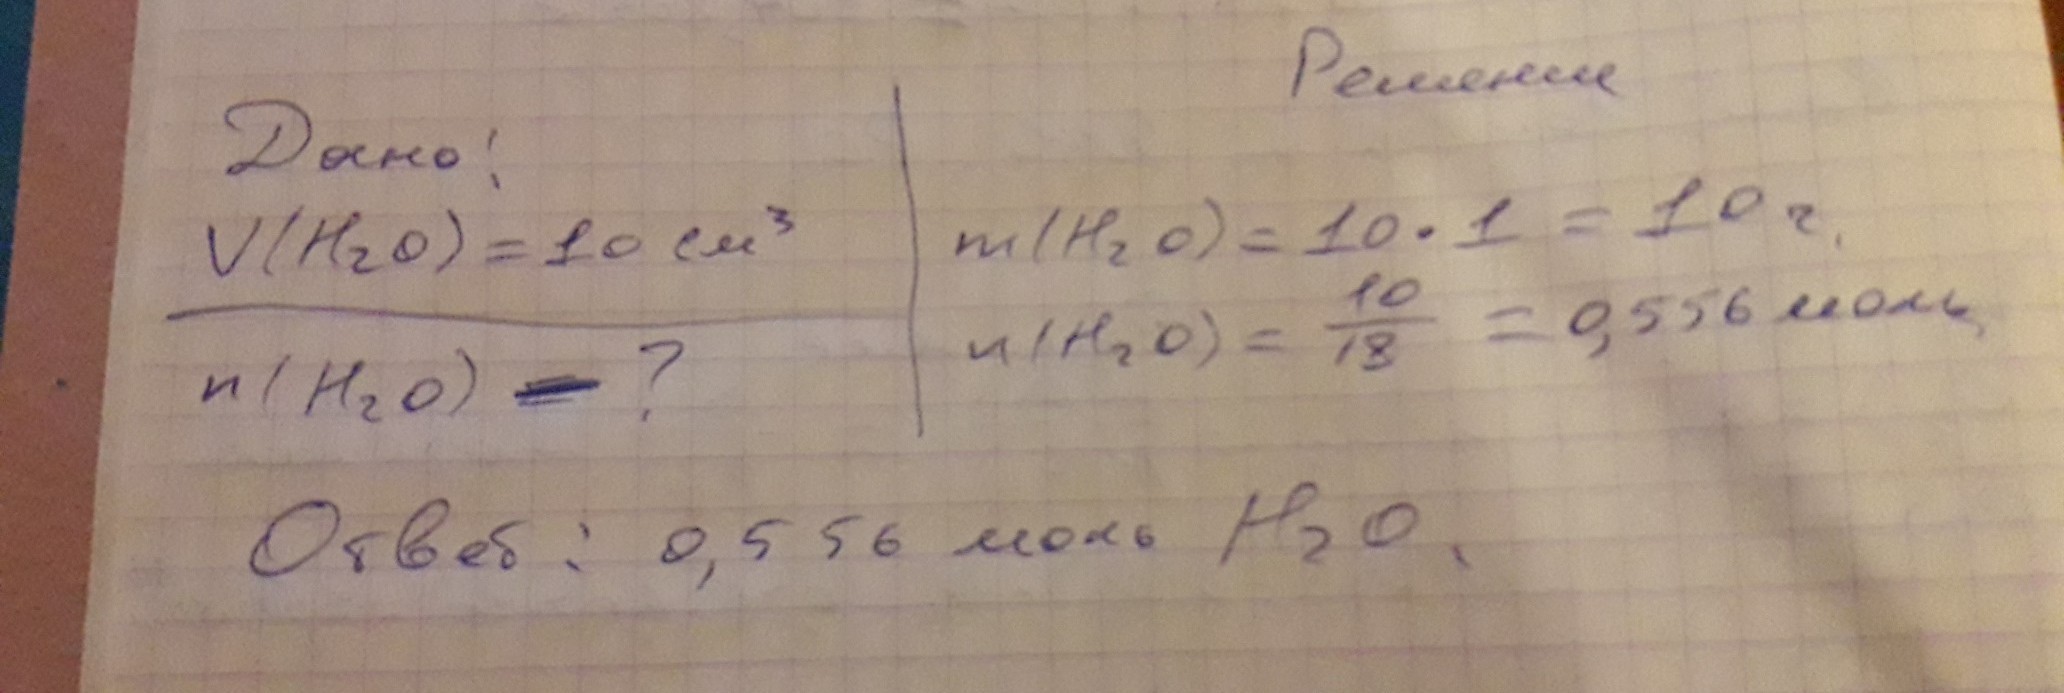 Решение
Дано:
V(H₂O) = 10 см³
n(H₂O) - ?
m(H₂O) = 10 · 1 = 10 г.
n(H₂O) = 10/18 = 0,556 моль
Ответ: 0,556 моль H₂O.